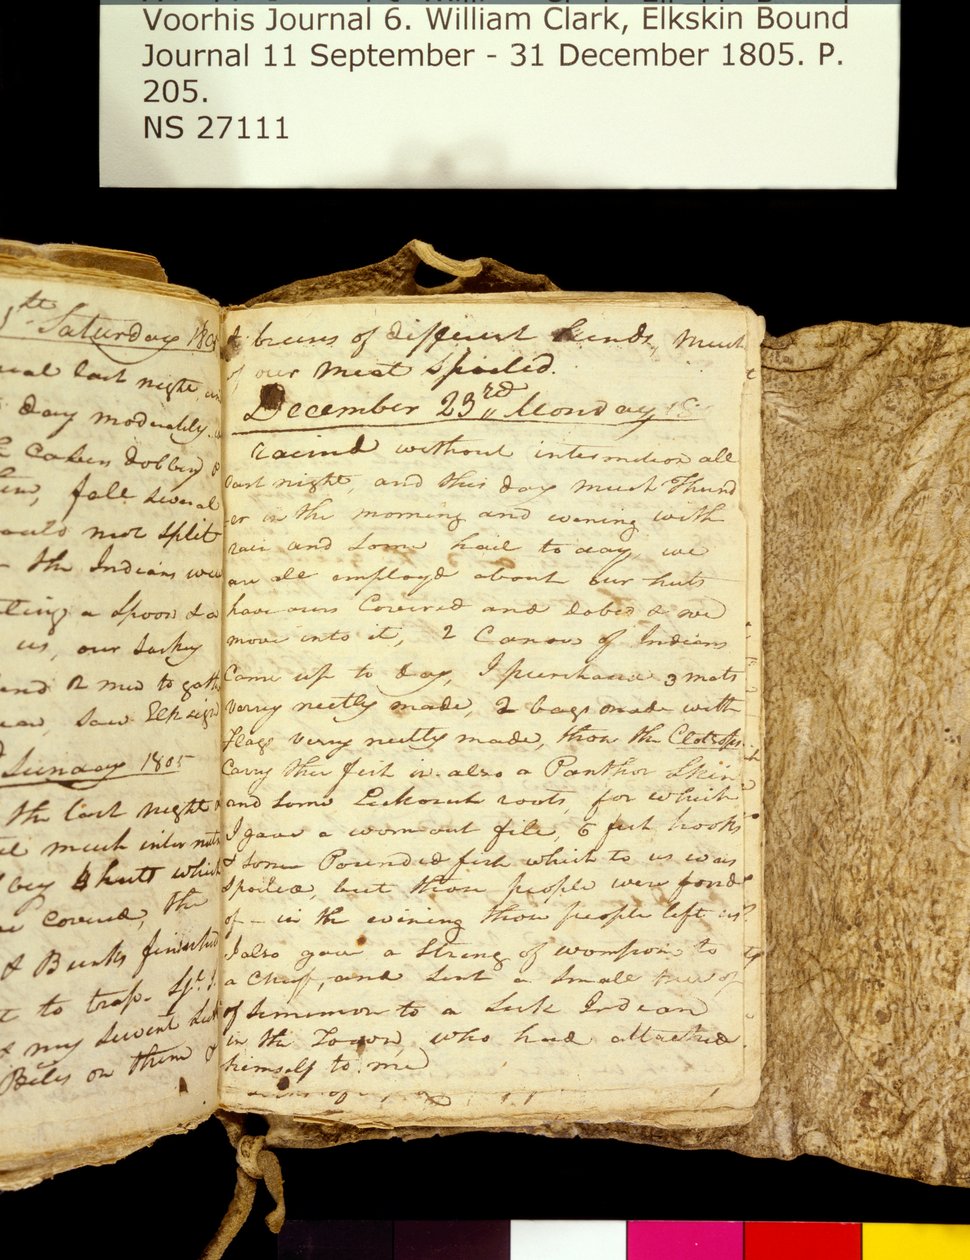 Voorhis Journal 6. William Clark, Elkskin Bound
Journal 11 September - 31 December 1805. P.
205.
NS 27111
Saturday 180
last night
day moderately
Cabins dobbing &
fall several
not split
the Indians wer
a Spoon & a
us, our Sackey
2 men to gath
Saw Elk sign
Sunday 1805
the last night &
much inter mit
4 hutts which
Covered, the
& Bunks finished
to trap. Sjt.
& my Servent
Biles on them &
& bruses of different kinds, Much
of our meat Spoiled.
December 23rd Monday 18
rained without intermition all
last night, and this day much Thund
er in the morning and evening with
rain and Some hail to day, we
are all employd about our huts
have ours Covered and dobed & we
move into it, 2 Canoes of Indians
Came up to day, I purchased 3 mats
verry neetly made, 2 bags made with
Flags verry neetly made, those the Clotsops
Carry ther fish in. also a Panthor Skin
and Some Lickorish roots, for which
I gave a worn out file, 6 fish hooks
& Some Pounded fish which to us was
Spoiled, but those people were fond
of - in the evening those people left us
I also gave a String of wompom to
a Chief, and Sent a Small of
of Simimon to a Sick Indian
in the Town, who had attached
himself to me